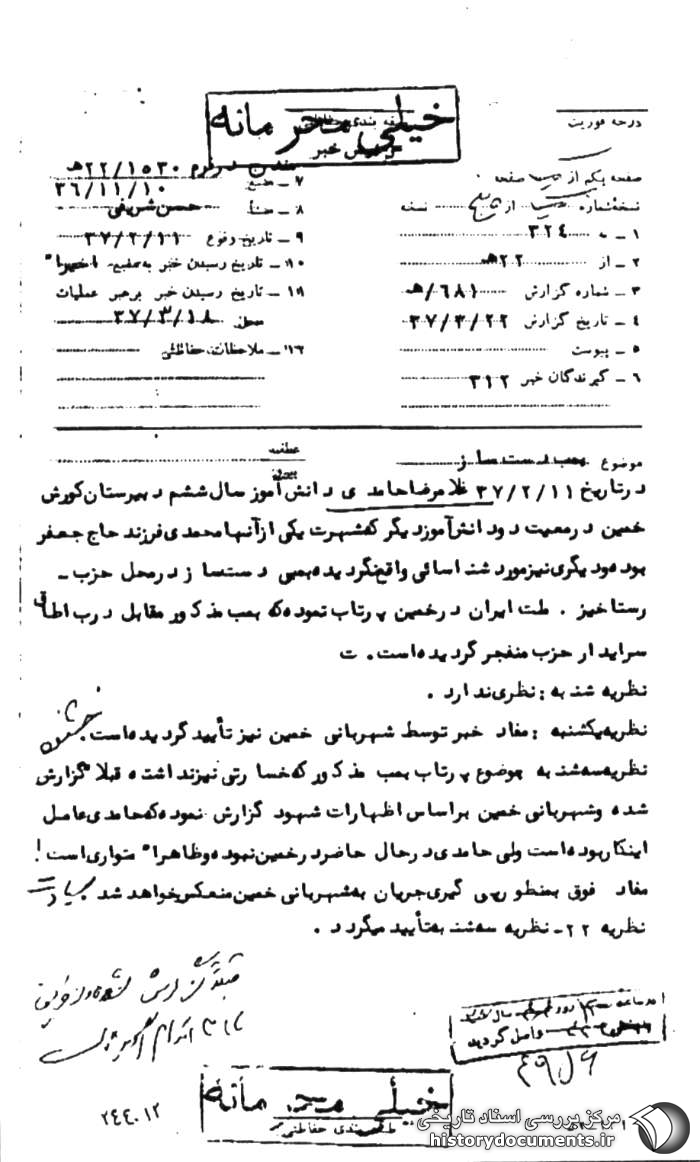 خیلی محرمانه
درجه فوریت
طبقه بندی حفاظتی
گزارش خبر
صفحه یکم از صفحه
نسخه شماره از نسخه
۱ - به ۳۲۴
۲ - از ۲۲ﻫ
۳ - شماره گزارش ۶۸۱/ﻫ
۴ - تاریخ گزارش ۳۷/۳/۲۲
۵ - پیوست
۶ - گیرندگان خبر ۳۱۲
۲۲/۱۵۳۰ﻫ
۷ - منبع ۳۶/۱۱/۱۰
۸ - منشأ حسن شریفی
۹ - تاریخ وقوع ۳۷/۲/۱۱
۱۰ - تاریخ رسیدن خبر به منبع اخیرا"
۱۱ - تاریخ رسیدن خبر برهبر عملیات
محل ۳۷/۳/۱۸
۱۲ - ملاحظات حفاظتی
موضوع بمب دست ساز
عطف به
پیرو
در تاریخ ۳۷/۲/۱۱ غلامرضا حامدی دانش آموز سال ششم دبیرستان کورش
خمین در معیت دو دانش آموز دیگر که شهرت یکی از آنها محمدی فرزند حاج جعفر
بوده و دیگری نیز مورد شناسائی واقع نگردیده بمبی دست ساز در محل حزب -
رستاخیز . ملت ایران در خمین پرتاب نموده که بمب مذکور مقابل درب اطاق
سرایدار حزب منفجر گردیده است. ت
نظریه شنبه : نظری ندارد .
نظریه یکشنبه : مفاد خبر توسط شهربانی خمین نیز تأیید گردیده است.
نظریه سه شنبه موضوع پرتاب بمب مذکور که خسارتی نیز نداشته قبلا" گزارش
شده و شهربانی خمین بر اساس اظهارات شهود گزارش نموده که حامدی عامل
اینکار بوده است ولی حامدی در حال حاضر در خمین نبوده و ظاهرا" متواری است !
مفاد فوق بمنظور پی گیری جریان به شهربانی خمین منعکس خواهد شد .
نظریه ۲۲ - نظریه سه شنبه تأیید میگردد .
واصل گردید
خیلی محرمانه
طبقه بندی حفاظتی
۲۴۴۰۱۲
مرکز بررسی اسناد تاریخی
historydocuments.ir